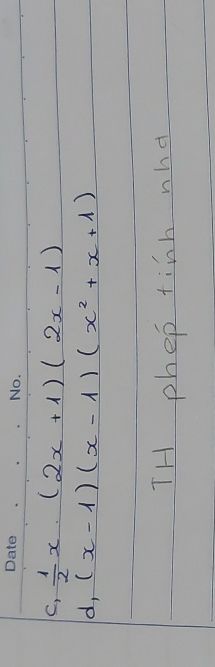 Date . . . No.
c, \frac{1}{2}x. (2x + 1)( 2x - 1)
d, (x - 1)(x - 1)(x² + x + 1)
TH phép tính nha